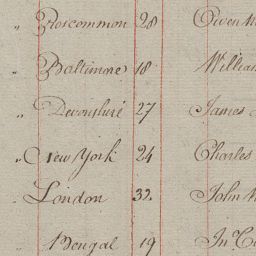 " Roscommon 28 Owen
" Baltimore 18 William
" Devonshire 27 James
" New York 24 Charles
" London 32 John
" Bengal 19 Jn°